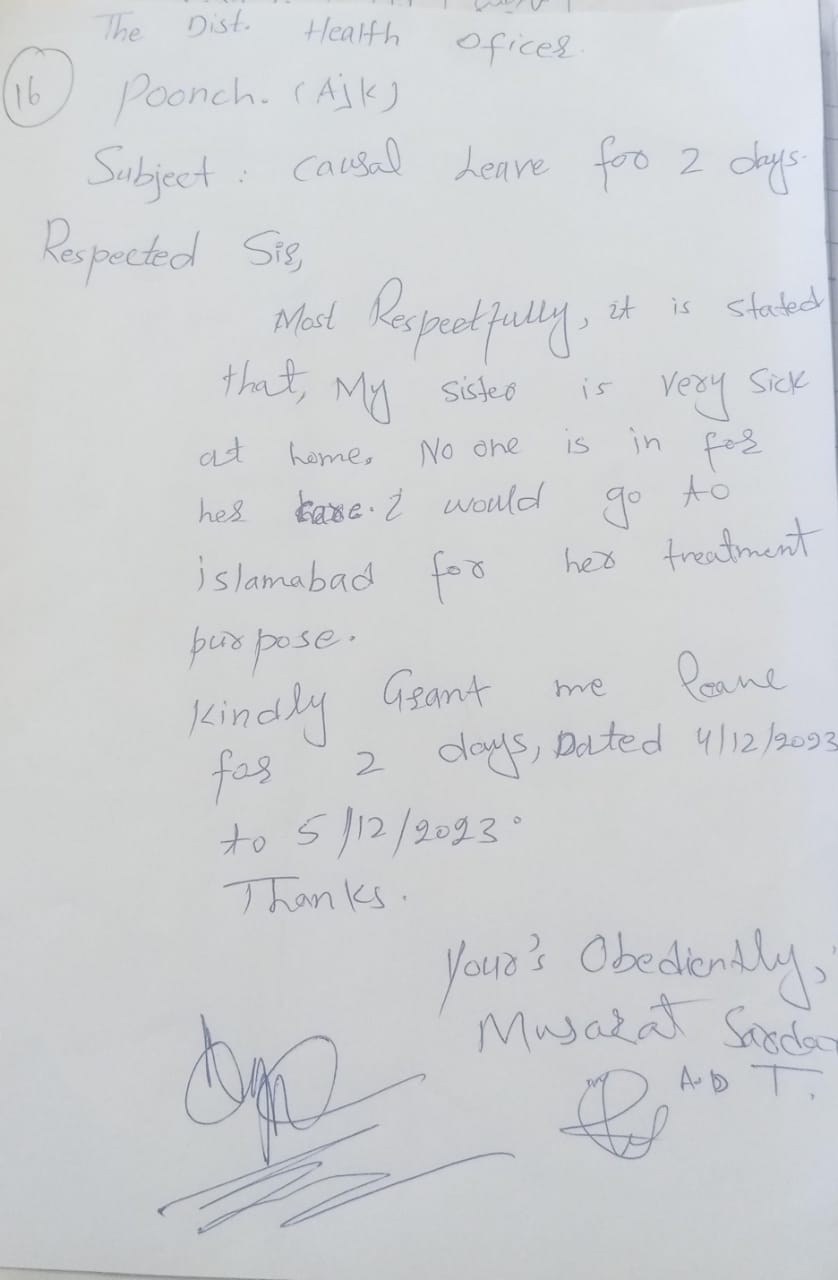 The Dist. Health Oficer.
16
Poonch. (AJK)
Subject : Causal Leave for 2 days.
Respected Sir,
Most Respectfully, it is stated
that, My sister is very sick
at home. No one is in for
her care. I would go to
islamabad for her treatment
purpose.
Kindly Grant me leave
for 2 days, Dated 4/12/2023
to 5/12/2023.
Thanks.
Your's Obediently,
Musarat Sardar
A.D T.